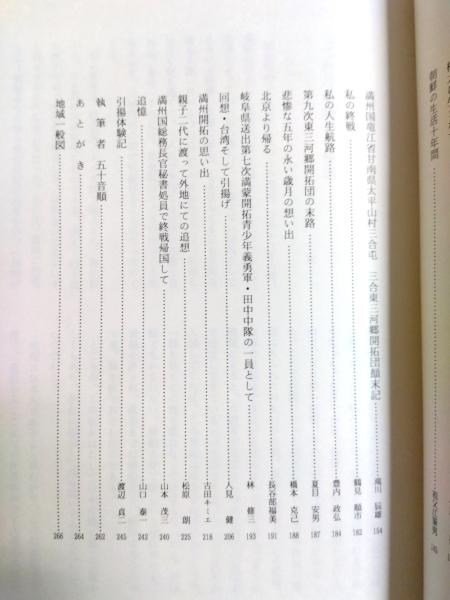 朝鮮の生活十年間
満州国竜江省甘南県太平山村三合屯 三合東三河郷開拓団顛末記 滝川 辰雄 154
私の終戦 鶴見 順市 182
私の人生航路 豊内 政弘 184
第九次東三河郷開拓団の末路 夏目 安男 187
悲惨な五年の永い歳月の想い出 橋本 克己 188
北京より帰る 長谷部福美 191
岐阜県送出第七次満蒙開拓青少年義勇軍・田中中隊の一員として 林 修三 193
回想・台湾そして引揚げ 人見 健 206
満州開拓の思い出 古田キミエ 218
親子二代に渡って外地にての追想 松原 朗 225
満州国総務長官秘書処員で終戦帰国して 山本 茂三 240
追憶 山口 泰一 242
引揚体験記 渡辺 貞二 245
執筆者 五十音順 262
あとがき 264
地域一般図 266